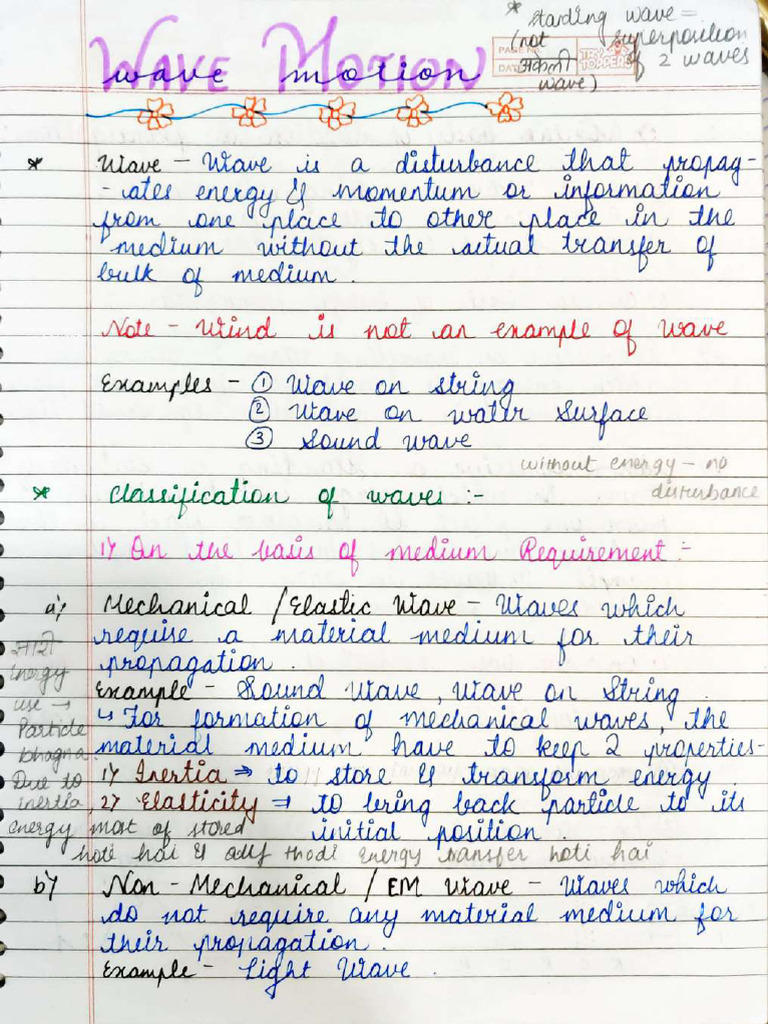 * standing wave =
(not superposition
अकेली of 2 waves
wave)
PAGE NO.
DATE
WAVE MOTION
wave motion
* Wave - Wave is a disturbance that propag-
-ates energy & momentum or information
from one place to other place in the
medium without the actual transfer of
bulk of medium.
Note - Wind is not an example of wave
Examples - ① Wave on string
② Wave on water surface
③ Sound wave
without energy - no
disturbance
* Classification of waves :-
1) On the basis of medium Requirement :-
a) Mechanical / Elastic Wave - Waves which
require a material medium for their
propagation.
Example - Sound Wave, Wave on String.
↳ For formation of mechanical waves, the
material medium have to keep 2 properties-
1) Inertia ⇒ to store & transform energy.
2) Elasticity ⇒ to bring back particle to its
initial position.
energy
use →
Particle
bhogna
Due to
inertia,
energy most of stored
hoti hai & thodi energy transfer hoti hai
b) Non-Mechanical / EM Wave - Waves which
do not require any material medium for
their propagation.
Example - Light Wave.